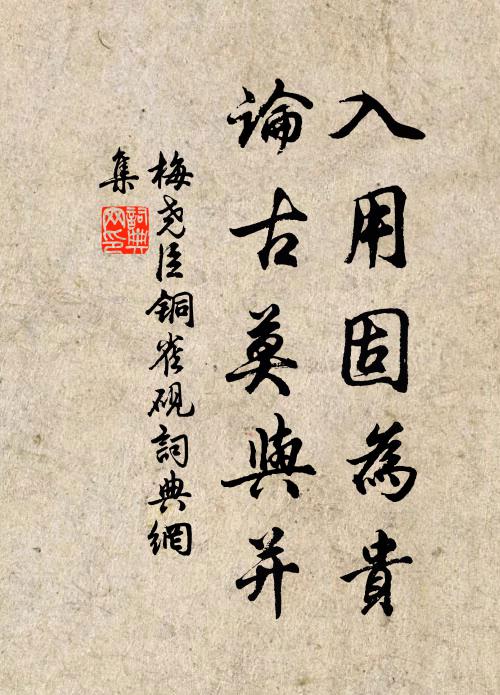 入用固為貴
論古莫與并
梅堯臣銅雀硯詞典網
集
詞典
网印